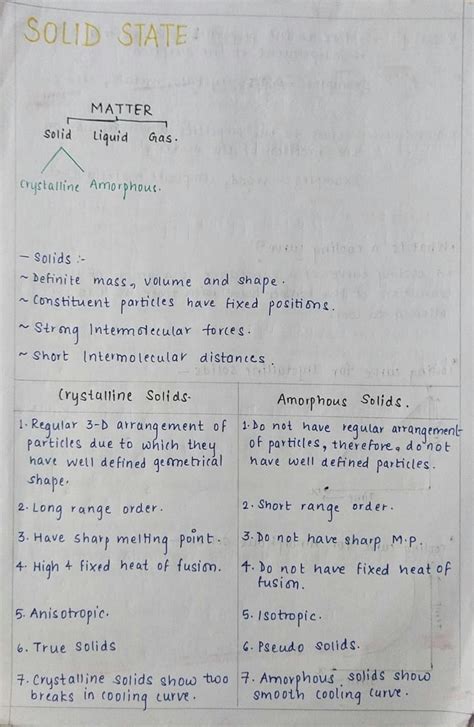 SOLID STATE:
MATTER
Solid Liquid Gas.
Crystalline Amorphous.
- Solids :-
~ Definite mass, volume and shape.
~ Constituent particles have fixed positions.
~ Strong Intermolecular forces.
~ Short Intermolecular distances.
Crystalline Solids.
1. Regular 3-D arrangement of
particles due to which they
have well defined geometrical
shape.
2. Long range order.
3. Have sharp melting point.
4. High & fixed heat of fusion.
5. Anisotropic.
6. True Solids
7. Crystalline solids show two
breaks in cooling curve.
Amorphous Solids.
1. Do not have regular arrangement
of particles, therefore, do not
have well defined particles.
2. Short range order.
3. Do not have sharp M.P.
4. Do not have fixed heat of
fusion.
5. Isotropic.
6. Pseudo solids.
7. Amorphous solids show
smooth cooling curve.